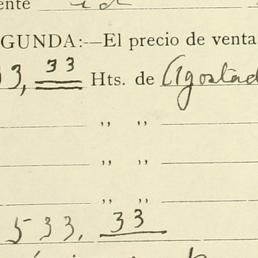 ente
GUNDA:—El precio de venta
3, 33 Hts. de Agostad
,, ,,
,, ,,
,, ,,
533, 33